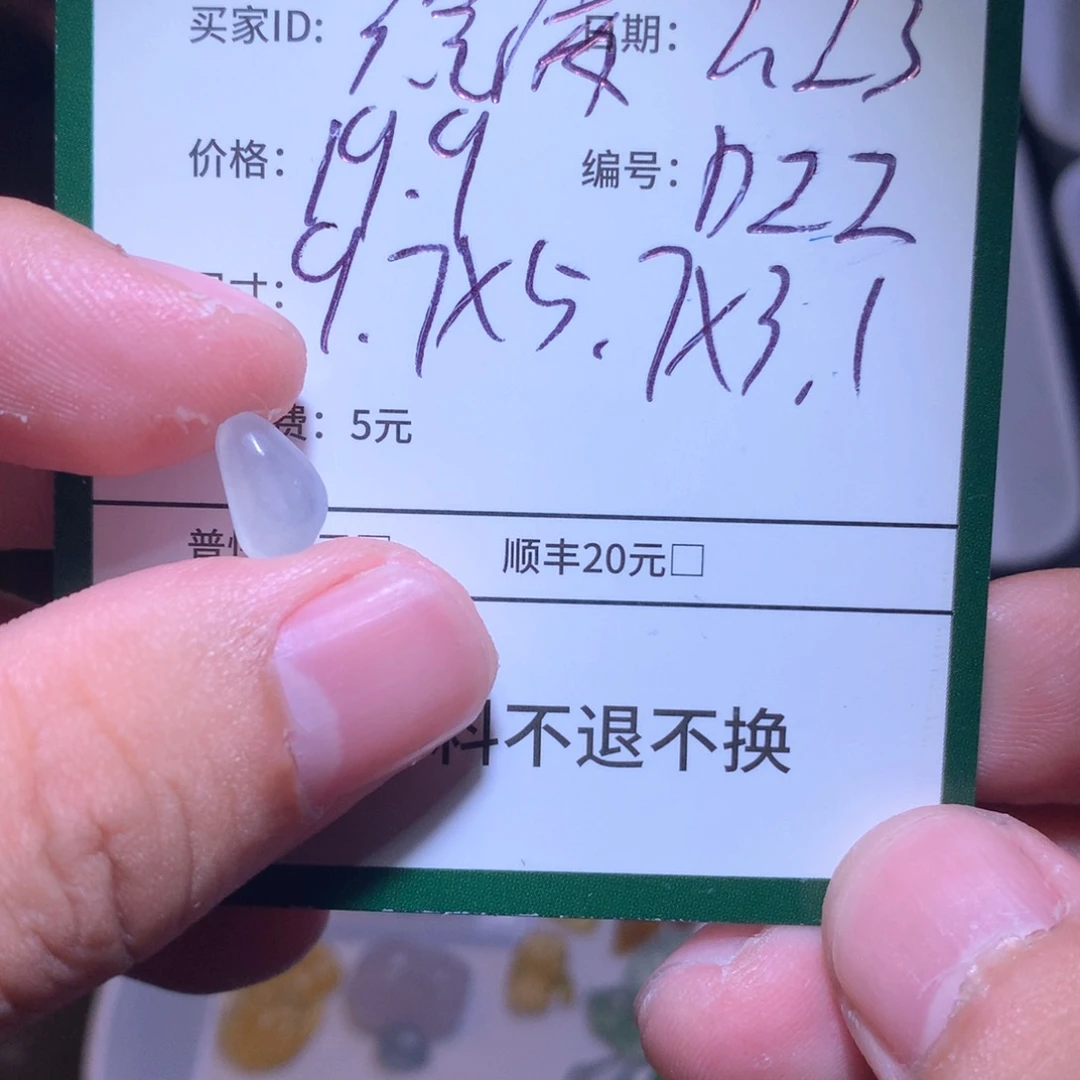 买家ID: 微 日期:
价格: 19.9 编号: D22
寸: 9.7X5.7X3.1
费: 5元
普 顺丰20元□
料不退不换